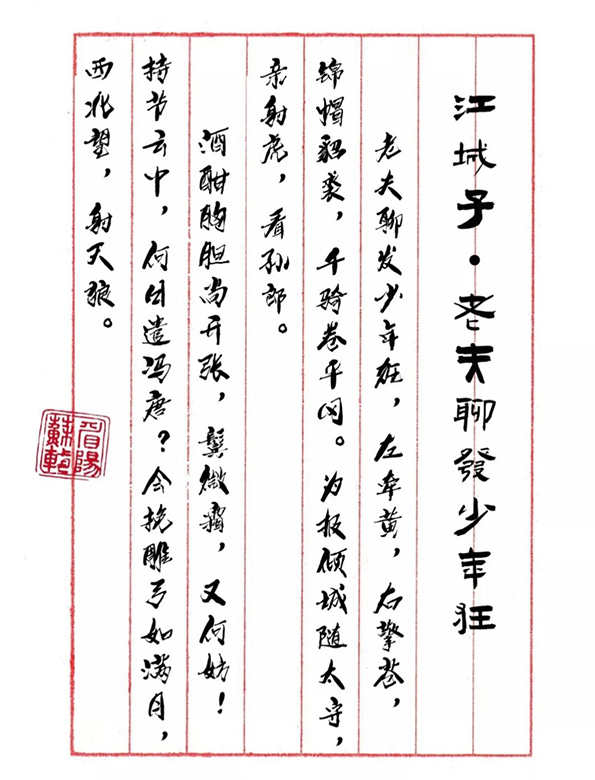 江城子·老夫聊發少年狂
老夫聊发少年狂，左牵黄，右擎苍，
锦帽貂裘，千骑卷平冈。为报倾城随太守，
亲射虎，看孙郎。
酒酣胸胆尚开张，鬓微霜，又何妨！
持节云中，何日遣冯唐？会挽雕弓如满月，
西北望，射天狼。
眉陽
蘇軾